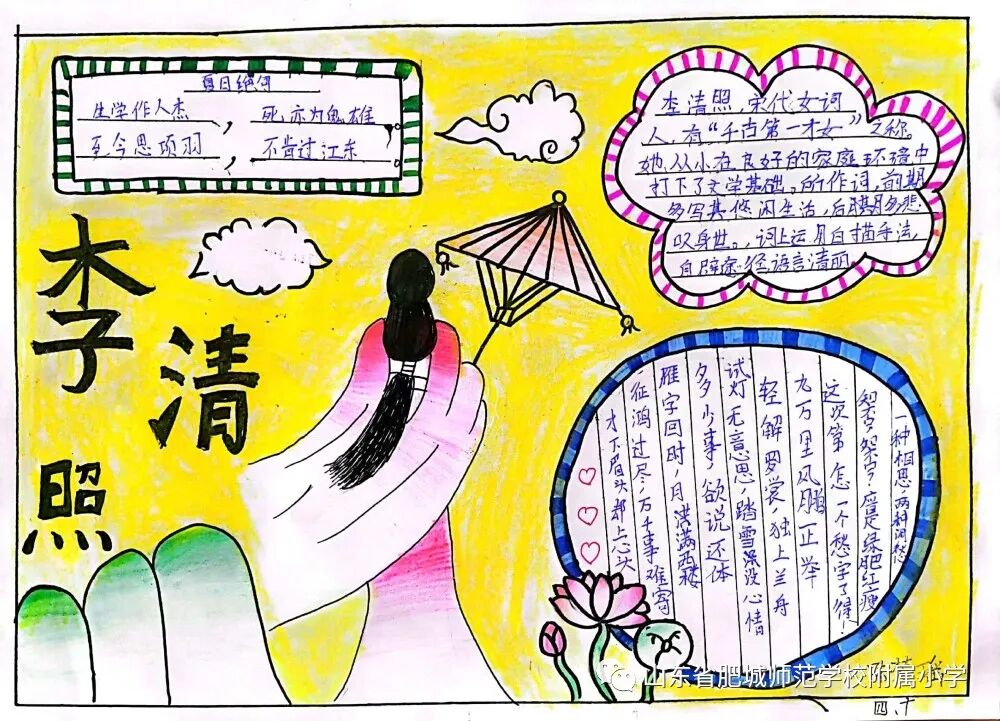 夏日绝句
生学作人杰,死亦为鬼雄。
至今思项羽,不肯过江东
李清照
李清照,宋代女词
人,有“千古第一才女”之称。
她从小在良好的家庭环境中
打下了文学基础。所作词,前期
多写其悠闲生活,后期多悲
叹身世。,词上运用白描手法,
自辟途径语言清丽
一种相思,两种闲愁
知否,知否?应是绿肥红瘦
这次第,怎一个愁字了得!
九万里风鹏正举
轻解罗裳,独上兰舟
试灯无意思,踏雪没心情
多少事,欲说还体
雁字回时,月满西楼
征鸿过尽,万千事难寄
才下眉头却上心头
山东省肥城师范学校附属小学
四、十